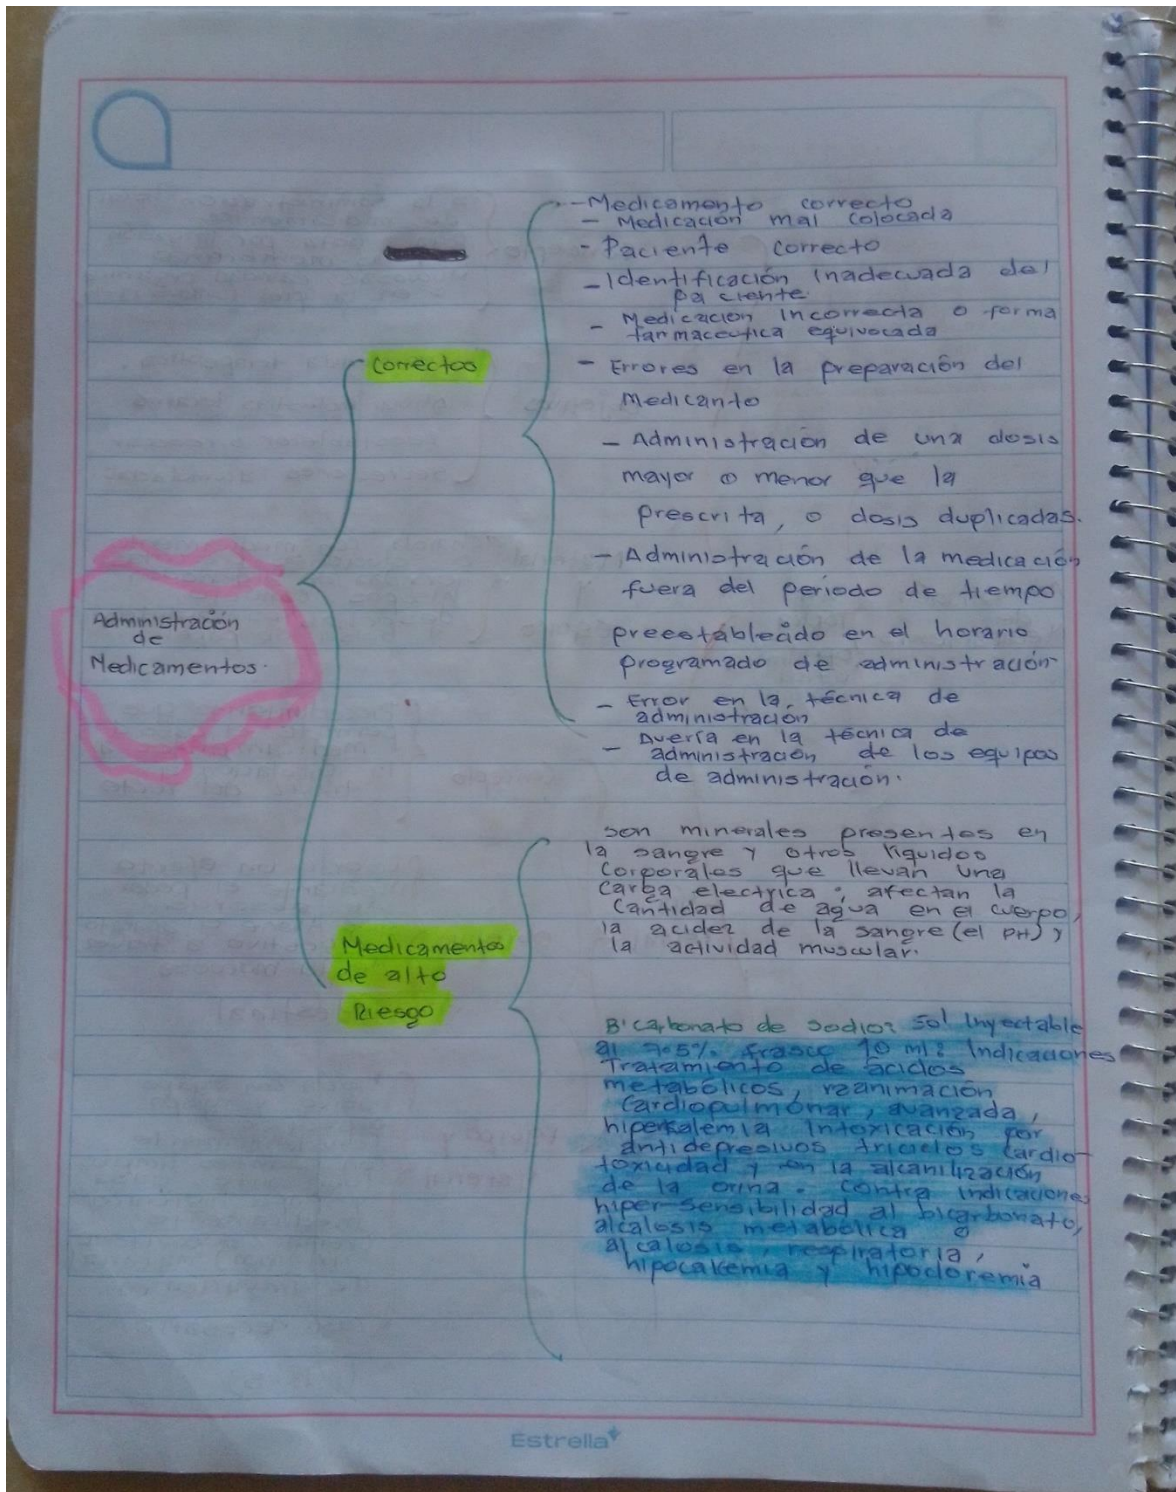 Administración
de
Medicamentos.
Correctos
-Medicamento correcto
- Medicación mal colocada
- Paciente correcto
- Identificación inadecuada del
paciente.
- Medicación incorrecta o forma
farmaceutica equivocada
- Errores en la preparación del
Medicanto
- Administración de una dosis
mayor o menor que la
prescrita, o dosis duplicadas.
- Administración de la medicación
fuera del periodo de tiempo
preestablecido en el horario
programado de administración
- Error en la técnica de
administración
- Avería en la técnica de
administración de los equipos
de administración.
Medicamentos
de alto
Riesgo
son minerales presentes en
la sangre y otros liquidos
corporales que llevan una
carga electrica; afectan la
cantidad de agua en el cuerpo,
la acidez de la sangre (el PH) y
la actividad muscular.
Bicarbonato de sodio: sol Inyectable
al 7.5%. frasco 10 ml: Indicaciones
Tratamiento de ácidos
metabólicos, reanimación
Cardiopulmonar, avanzada,
hiperkalemia Intoxicación por
antidepresivos cardio-
toxicidad y en la alcanilización
de la orina. Contra Indicaciones
hiper sensibilidad al bicarbonato,
alcalosis metabólica o
alcalosis, respiratoria,
hipocalemia y hipocloremia
Estrella